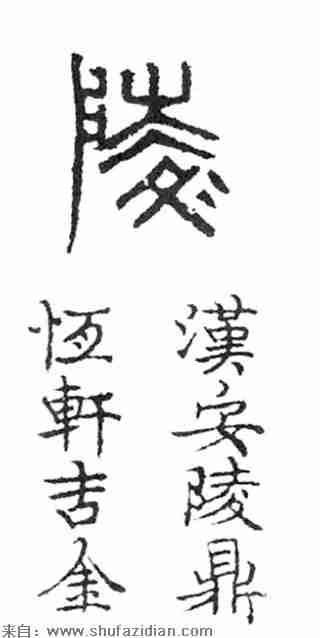 陵
漢安陵鼎
恆軒吉金
来自：www.shufazidian.com